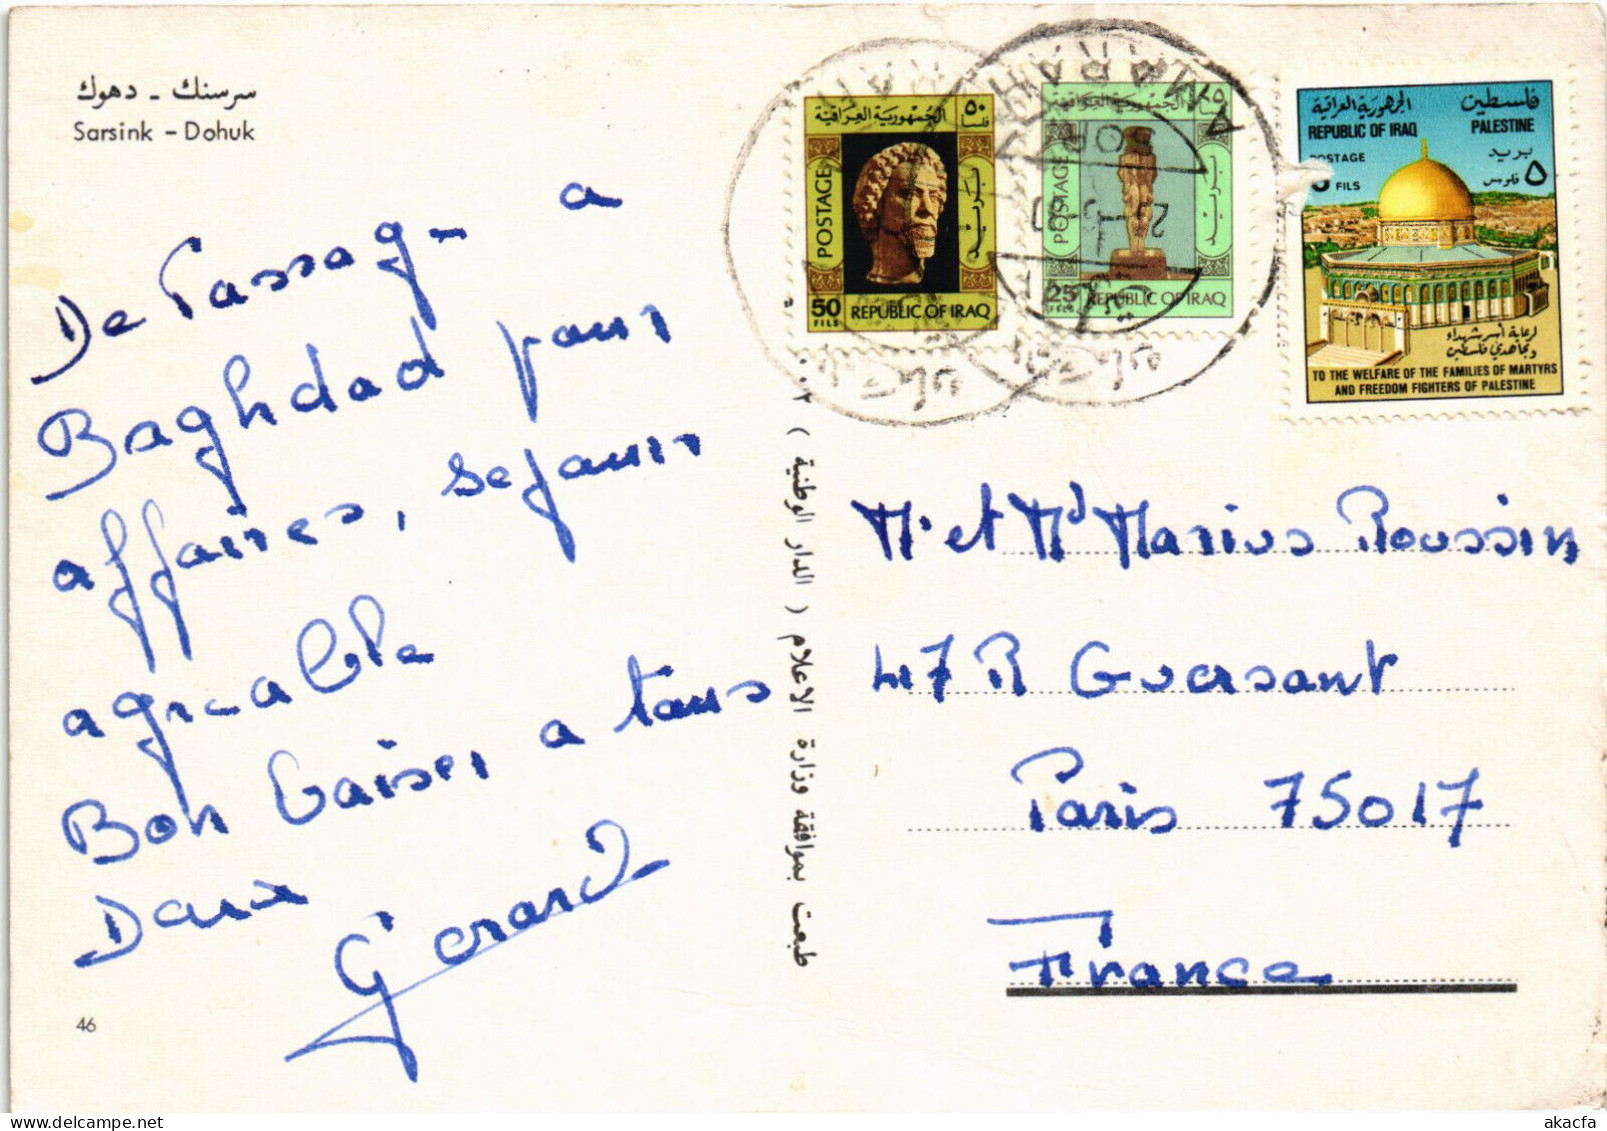 سرسنك - دهوك
Sarsink - Dohuk
De Passag- a
Baghdad pour
affaires, sejour
agreable
Bon baiser a tous
Deux
Gérard
46
طبعت بموافقة وزارة الاعلام ( الدار الوطنية )
الجمهورية العراقية
٥٠
فلسا
POSTAGE
بريد
50
FILS
REPUBLIC OF IRAQ
الجمهورية العراقية
POSTAGE
بريد
25
FILS
REPUBLIC OF IRAQ
AMARAH
الجمهورية العراقية
فلسطين
REPUBLIC OF IRAQ
PALESTINE
POSTAGE
بريد
5 FILS
٥ فلوس
لرعاية أسر شهداء
ومجاهدي فلسطين
TO THE WELFARE OF THE FAMILIES OF MARTYRS
AND FREEDOM FIGHTERS OF PALESTINE
Mr et Md Marius Roussin
47 R Guersant
Paris 75017
France
akacfa